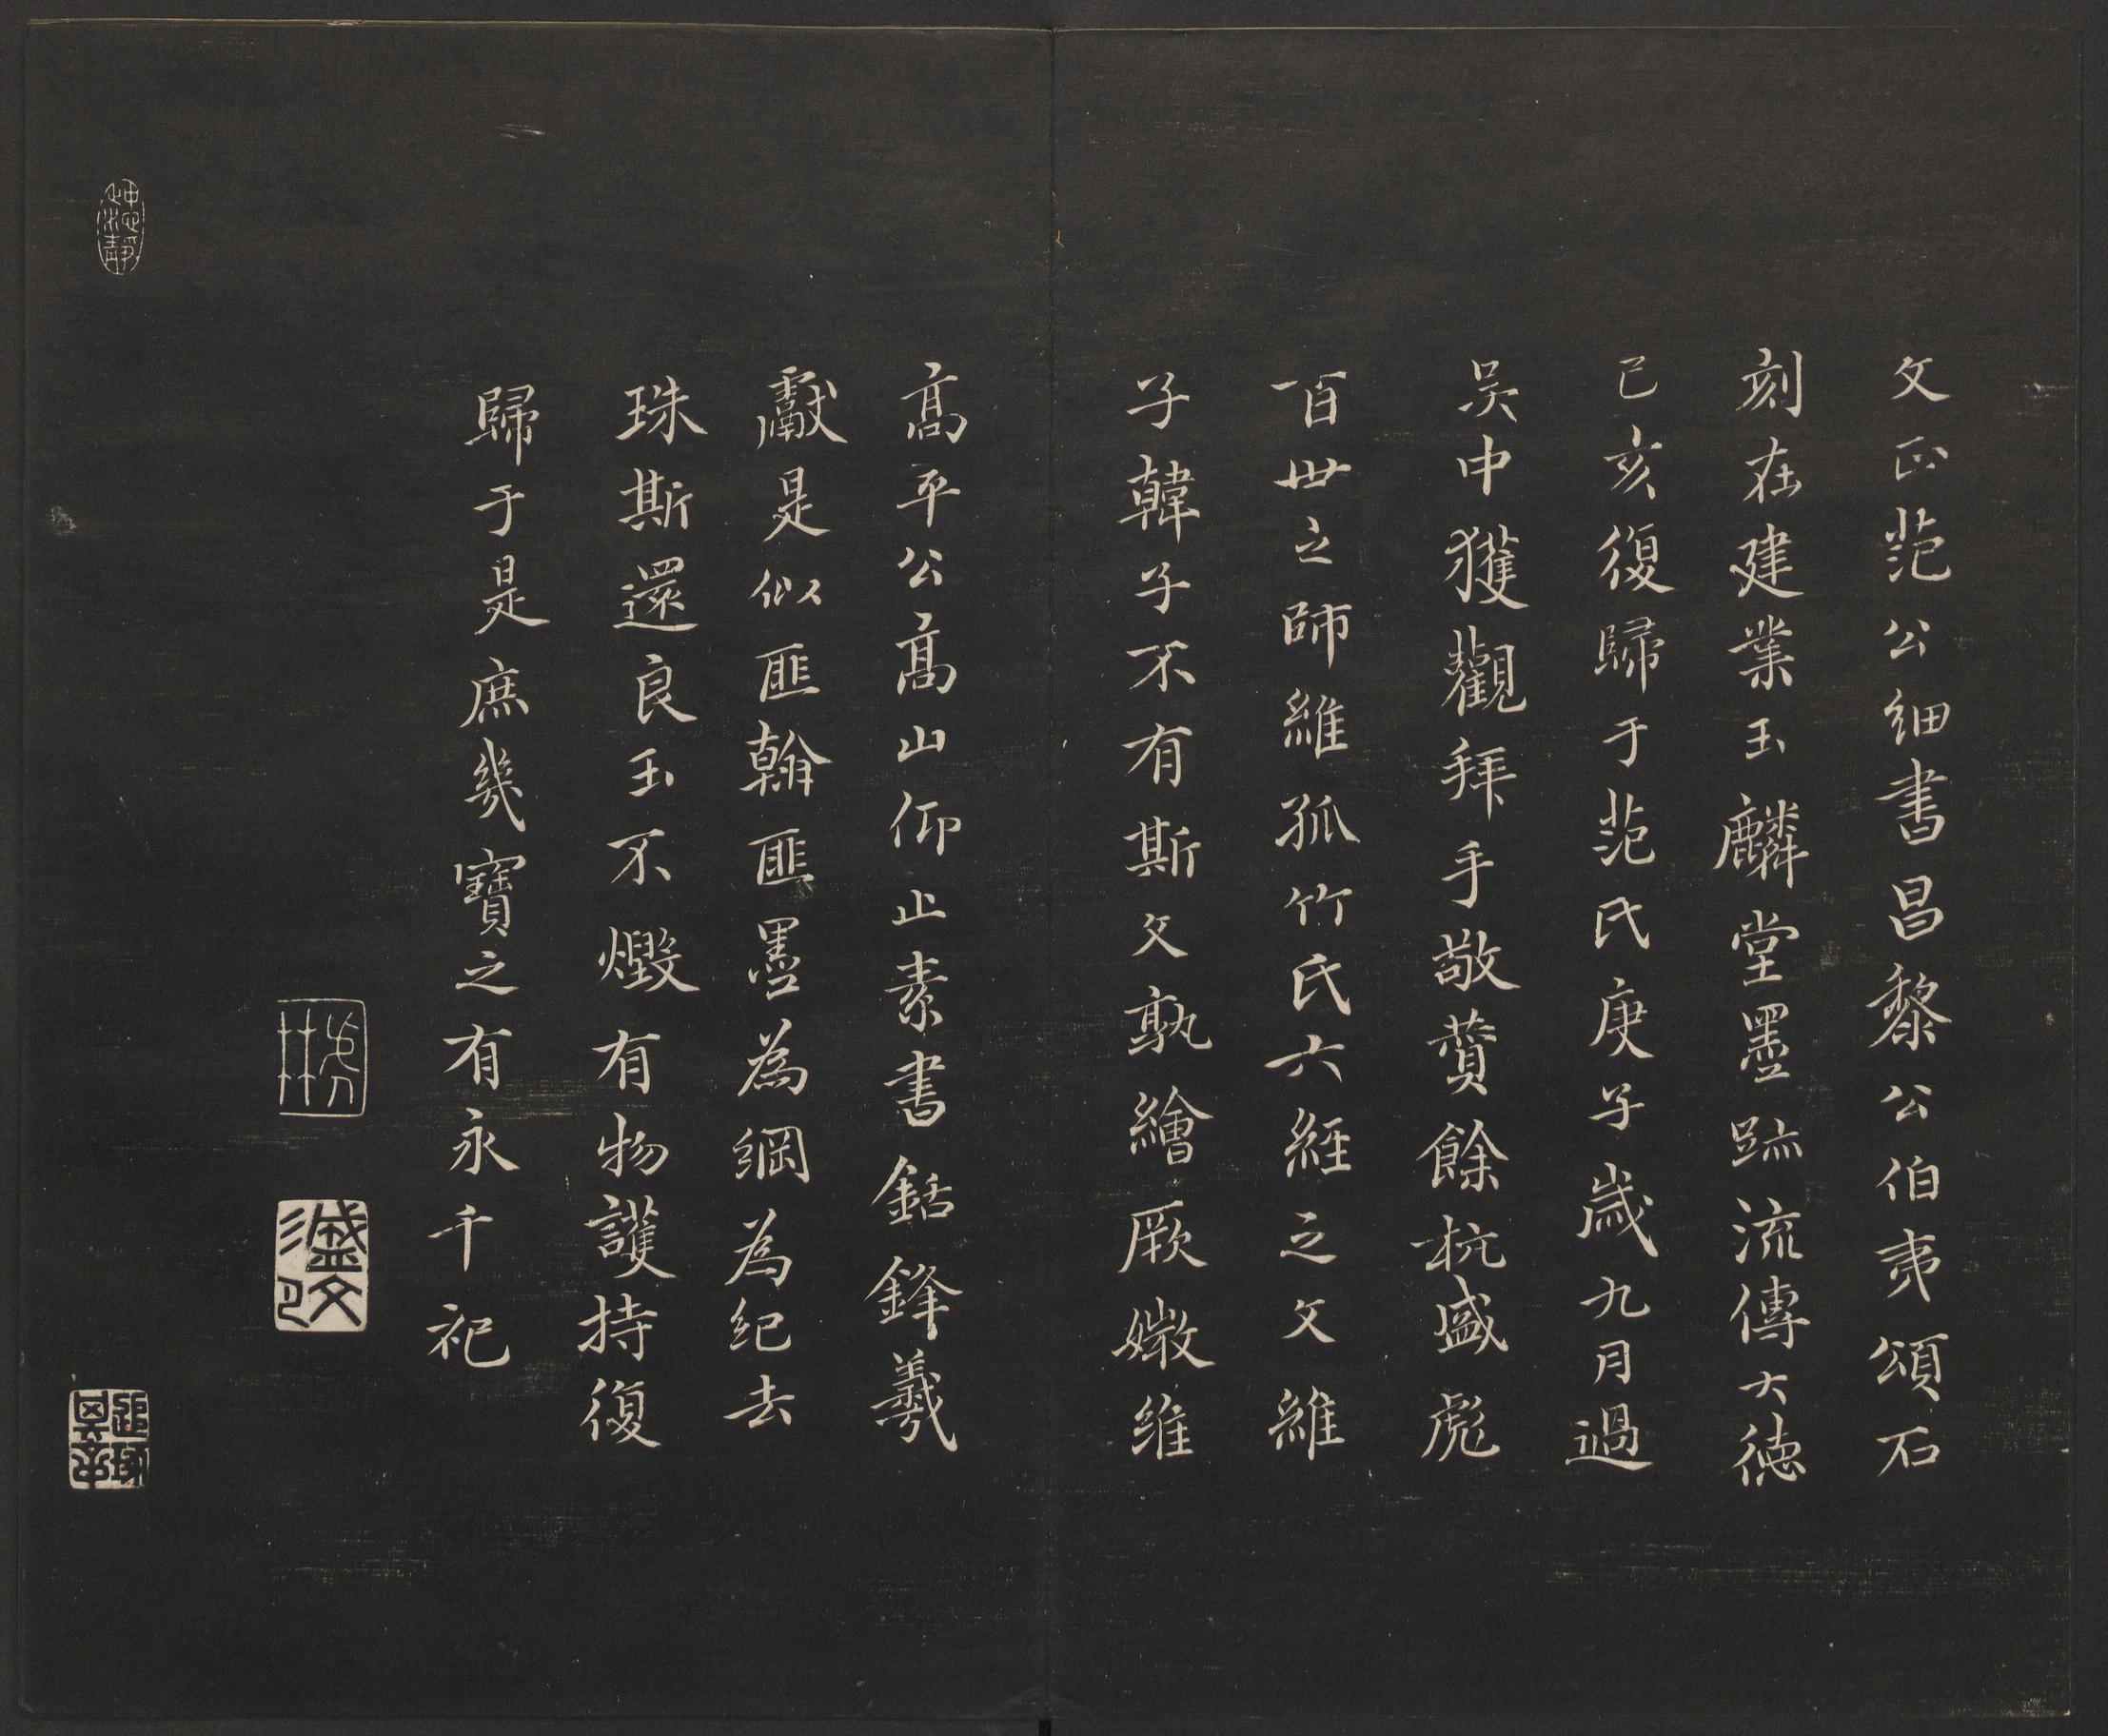 文正范公細書昌黎公伯夷頌石
刻在建業玉麟堂墨跡流傳大德
己亥復歸于范氏庚子歲九月過
吳中獲觀拜手敬贊餘杭盛彪
百世之師維孤竹氏六經之文維
子韓子不有斯文孰繪厥媺維
高平公高山仰止素書銛鋒羲
獻是似匪翰匪墨為綱為紀去
珠斯還良玉不燬有物護持復
歸于是庶幾寶之有永千祀
盛彪文印